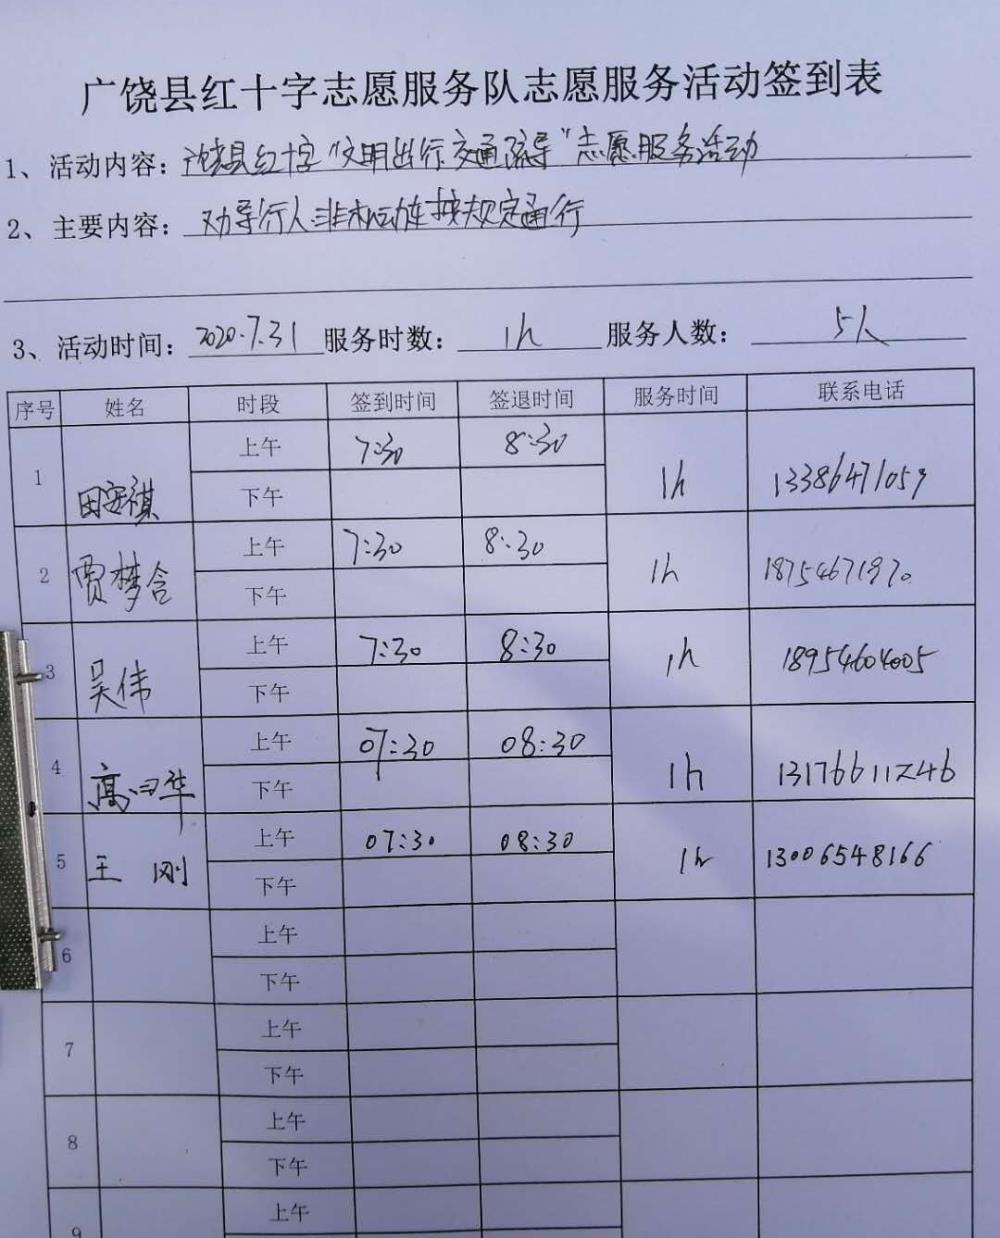 广饶县红十字志愿服务队志愿服务活动签到表
1、活动内容：广饶县红十字"文明出行交通疏导"志愿服务活动
2、主要内容：劝导行人非机动车按规定通行
3、活动时间：2020.7.31 服务时数：1h 服务人数：5人
序号 姓名 时段 签到时间 签退时间 服务时间 联系电话
1 田安祺 上午 7:30 8:30 1h 13386471059
下午
2 贾梦含 上午 7:30 8:30 1h 18754671970
下午
3 吴伟 上午 7:30 8:30 1h 18954604005
下午
4 高 华 上午 07:30 08:30 1h 13176611246
下午
5 王刚 上午 07:30 08:30 1h 13006548166
下午
6 上午
下午
7 上午
下午
8 上午
下午
9 上午